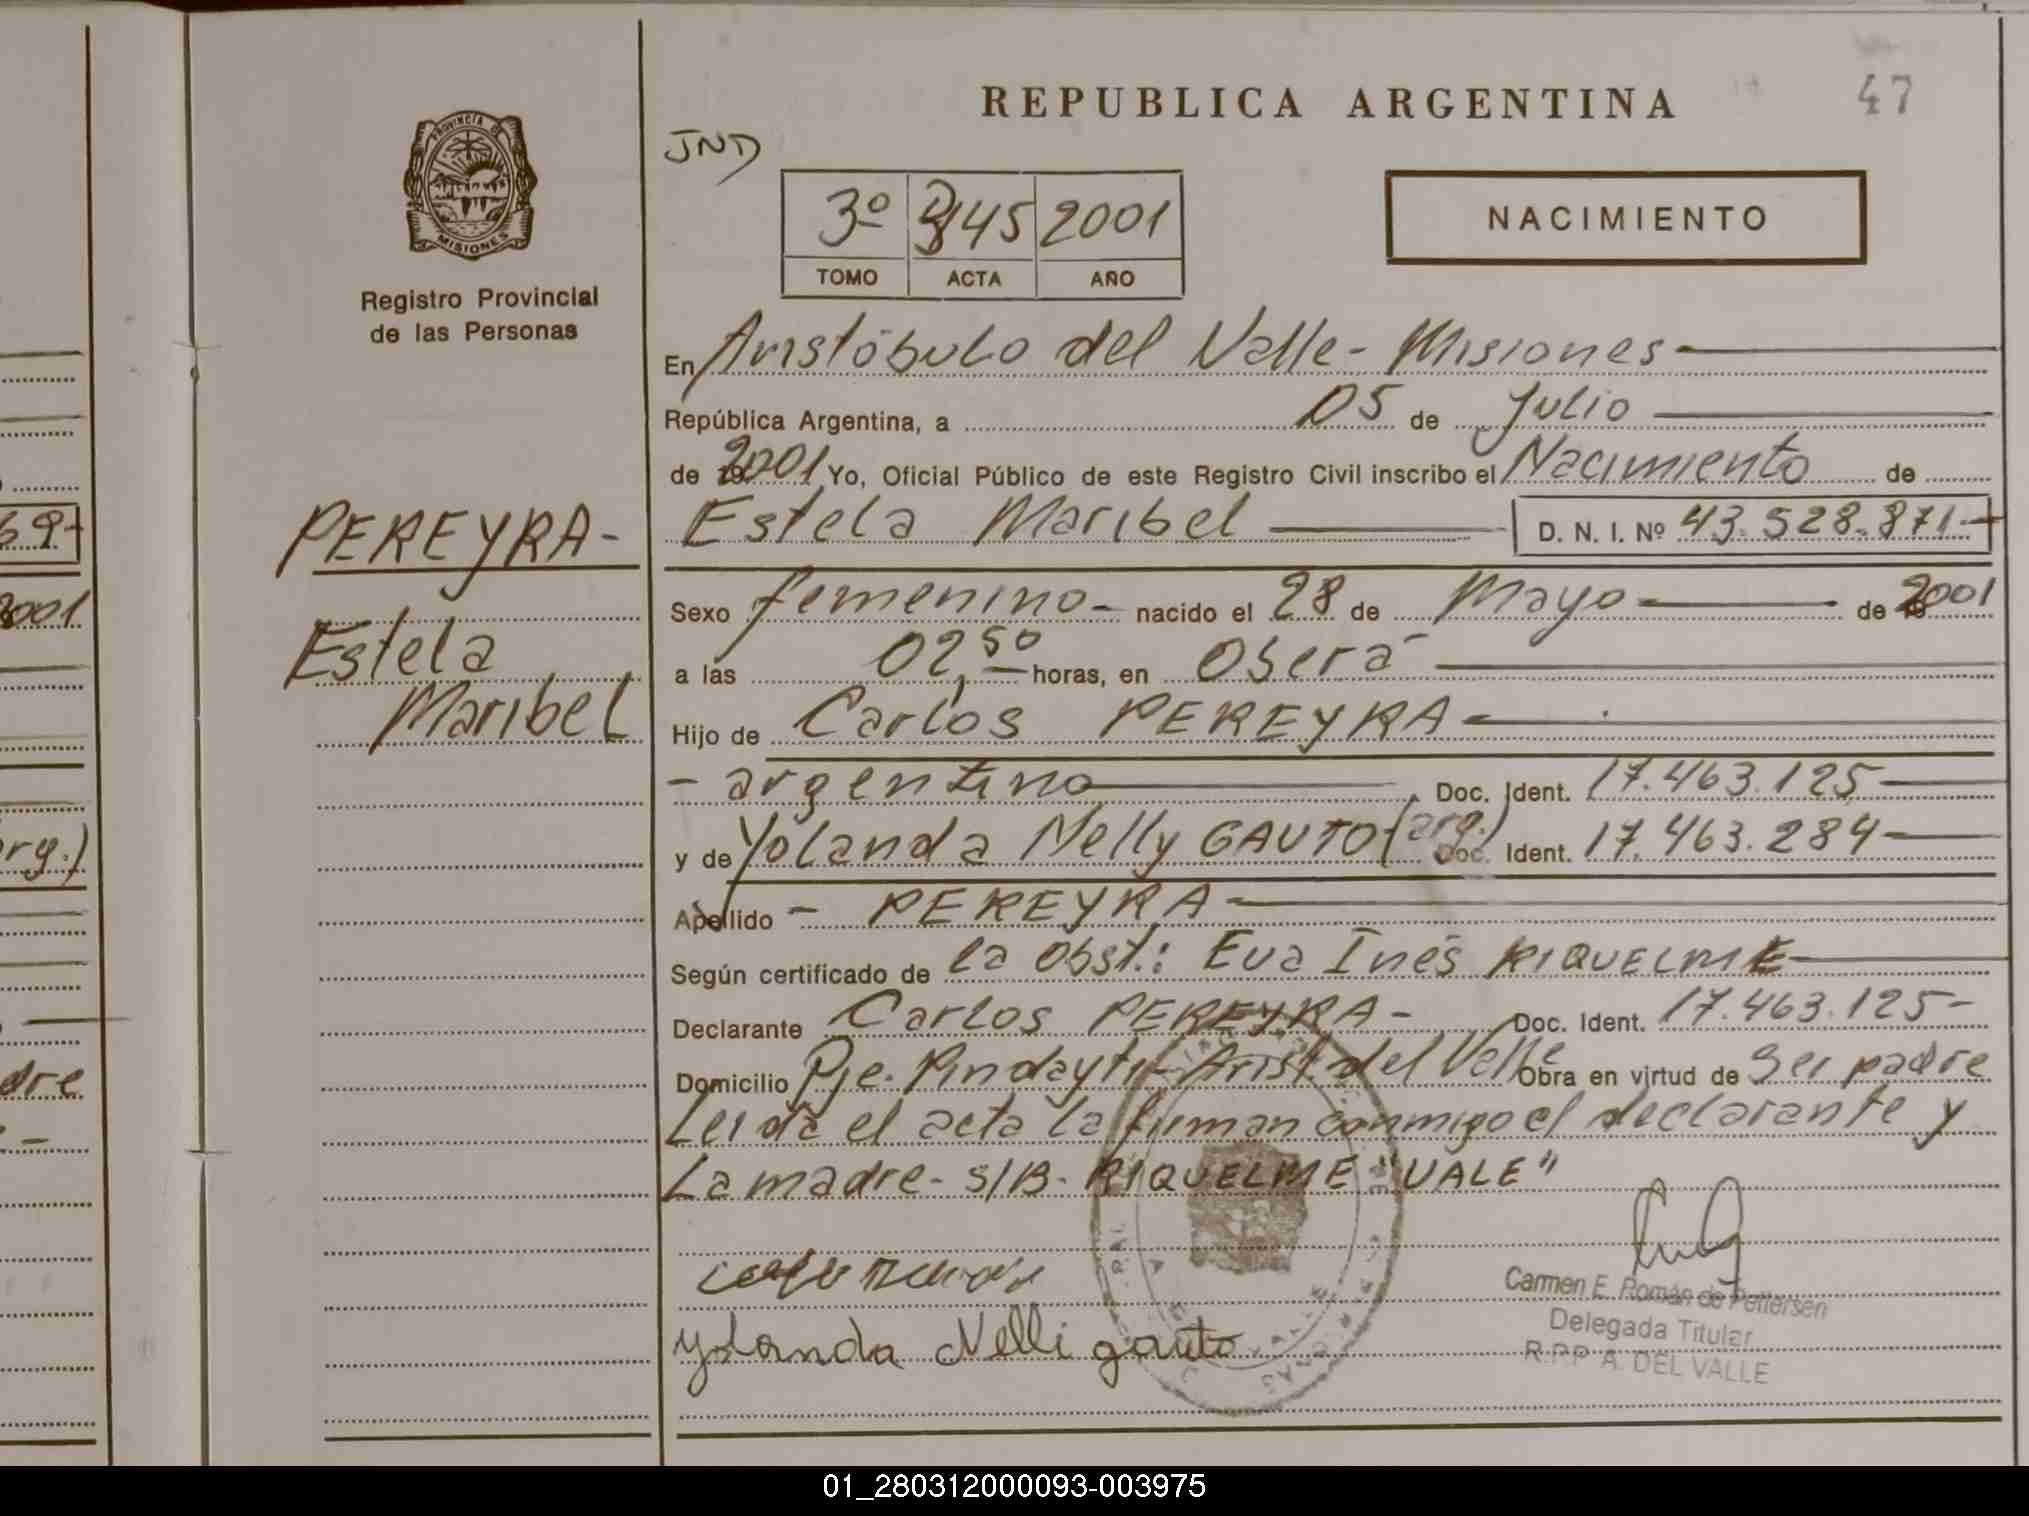 REPUBLICA ARGENTINA
47
JND
3º 2001
TOMO ACTA AÑO
NACIMIENTO
PROVINCIA DE
MISIONES
Registro Provincial
de las Personas
En Aristóbulo del Valle - Misiones
República Argentina, a 05 de Julio
de 2001 Yo, Oficial Público de este Registro Civil inscribo el Nacimiento de
PEREYRA-
Estela Maribel D. N. I. Nº 43.528.871.-
Estela
Maribel
Sexo femenino - nacido el 28 de Mayo de 2001
a las 02,50 horas, en Oberá
Hijo de Carlos PEREYRA
- argentino Doc. Ident. 17.463.125
y de Yolanda Nelly GAUTO (arg.) Doc. Ident. 17.463.284
Apellido - PEREYRA
Según certificado de la Obst.: Eva Inés RIQUELME
Declarante Carlos PEREYRA - Doc. Ident. 17.463.125-
Domicilio Pje. Pindayty - Arist. del Valle Obra en virtud de Ser padre
Leída el acta la firman conmigo el declarante y
La madre - S/B - RIQUELME "VALE"
Yolanda Nelli gauto
Carmen E. Román de Pettersen
Delegada Titular
R.P.P A. DEL VALLE
69-
2001
arg.)
adre
01_280312000093-003975